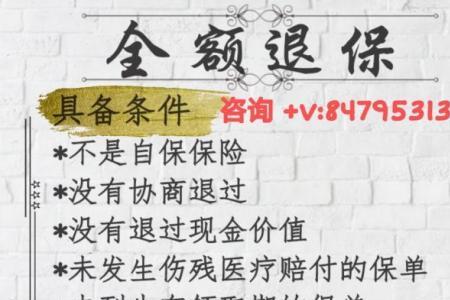 全额退保
具备条件 咨询 +v:84795313
*不是自保保险
*没有协商退过
*没有退过现金价值
*未发生伤残医疗赔付的保单